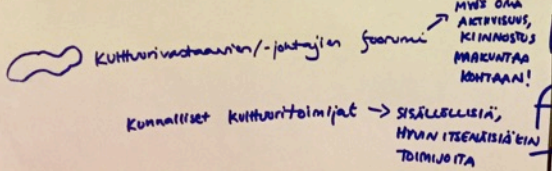 Kulttuurivastaavien/-johtajien foorumi →
MYÖS OMA
AKTIIVISUUS,
KIINNOSTUS
MAAKUNTAA
KOHTAAN!
Kunnalliset kulttuuritoimijat → SISÄLLÖLLISIÄ,
HYVIN ITSENÄISIÄKIN
TOIMIJOITA